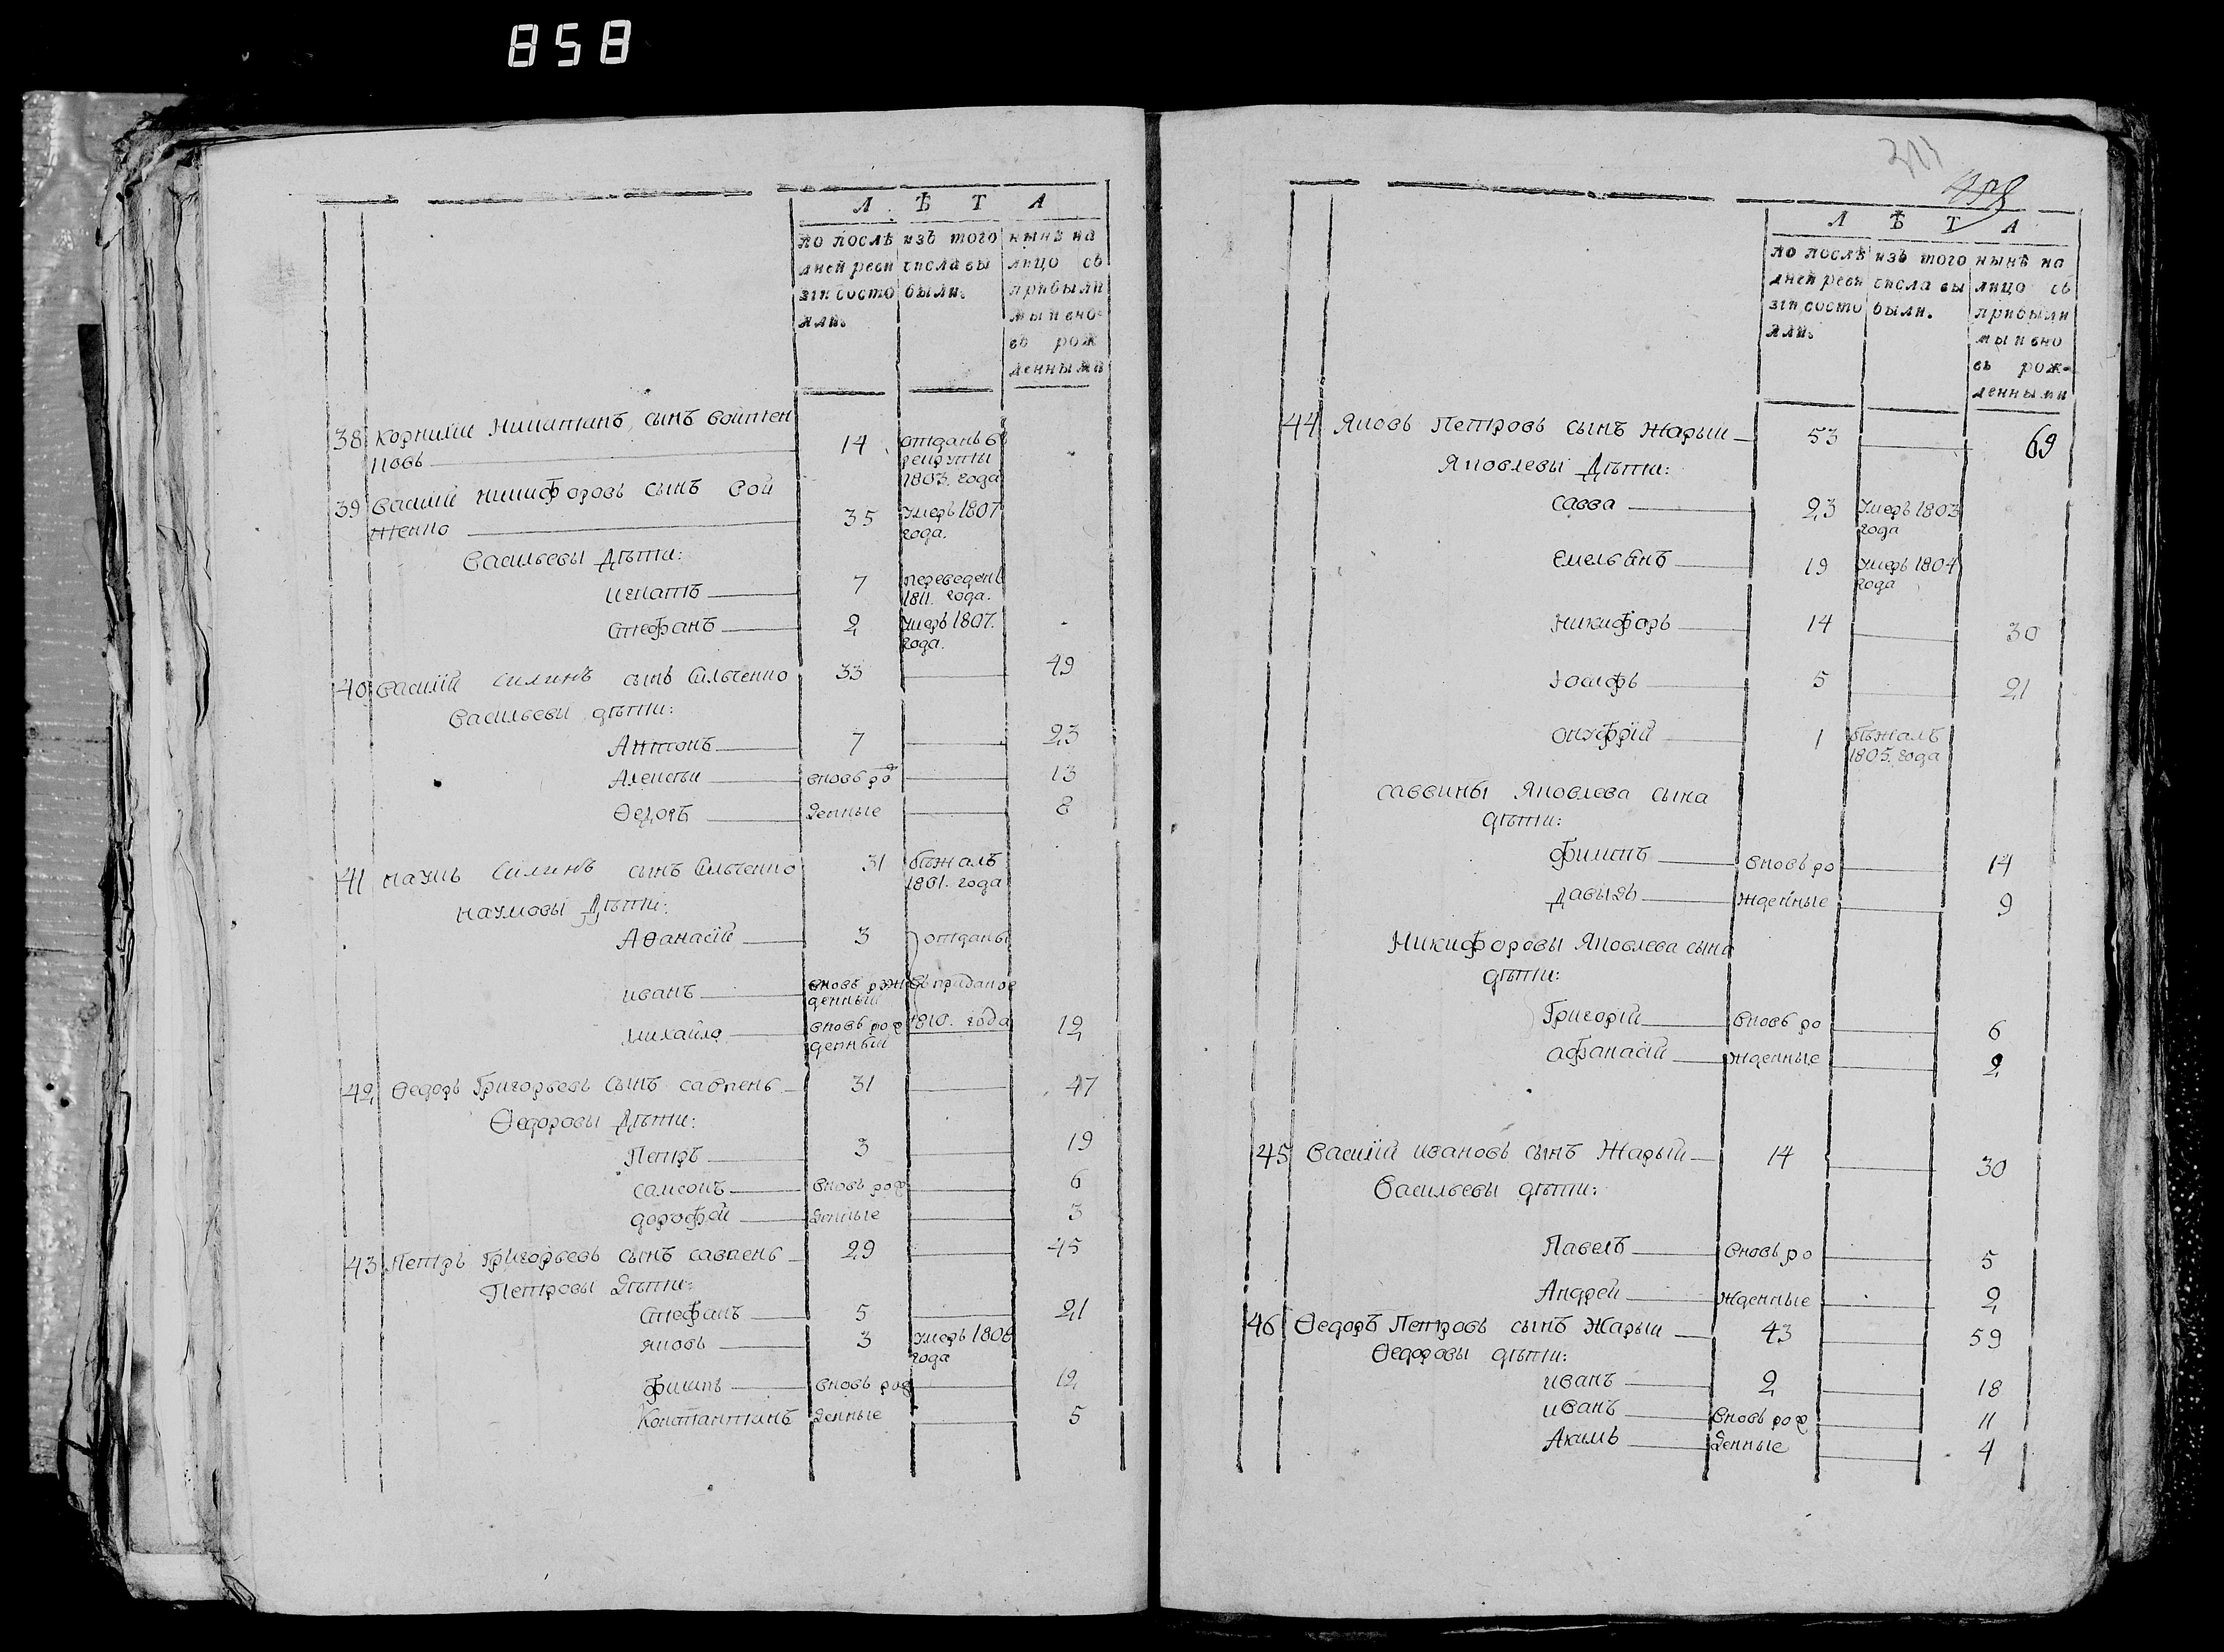 858
Л Ѣ Т А
по послѣ
дней реви
зіи состо
яли.
изъ того
числа вы
были.
нынѣ на
лицо съ
прибыли
мы и вно
въ рож
денными
38 Корнилій сынъ Войтен
ковъ 14 отданъ въ
рекруты
1803. года
39 Василій Никифоровъ сынъ Вой
тенко 35 умеръ 1807
года.
Васильевы Дѣти:
Игнатъ 7 переведенъ
1811. года.
Стефанъ 2 умеръ 1807.
года.
40 Василій Силинъ сынъ Сильченко 33 49
Васильевы дѣти:
Антонъ 7 23
Алексѣй вновь рож 13
Ѳедоръ денные 8
41 Наумъ Силинъ сынъ Сильченко 31 бѣжалъ
1801. года
Наумовы Дѣти:
Аѳанасій 3 отданы
Иванъ вновь рож въ приданое
денный
Михайло вновь рож 1810. года 12
денный
42 Ѳедоръ Григорьевъ сынъ 31 47
Ѳедоровы Дѣти:
Петръ 3 19
Самсонъ вновь рож 6
Дорофей денные 3
43 Петръ Григорьевъ сынъ 29 45
Петровы Дѣти:
Стефанъ 5 21
Яковъ 3 умеръ 1808
года
Филипъ вновь рож 12
Константинъ денные 5
311
Л Ѣ Т А
по послѣ
дней реви
зіи состо
яли.
изъ того
числа вы
были.
нынѣ на
лицо съ
прибыли
мы и вно
въ рож
денными
44 Яковъ Петровъ сынъ Жарый 53 69
Яковлевы Дѣти:
Савва 23 умеръ 1803
года
Емельянъ 19 умеръ 1804
года
Никифоръ 14 30
Іосифъ 5 21
Онуфрій 1 бѣжалъ
1805. года
Саввины Яковлева сына
дѣти:
Филипъ вновь ро 14
Давыдъ жденные 9
Никифоровы Яковлева сына
дѣти:
Григорій вновь ро 6
Афанасій жденные 2
45 Василій Ивановъ сынъ Жарый 14 30
Васильевы дѣти:
Павелъ вновь ро 5
Андрей жденные 2
46 Ѳедоръ Петровъ сынъ Жарый 43 59
Ѳедоровы дѣти:
Иванъ 2 18
Иванъ вновь рож 11
Акимъ денные 4